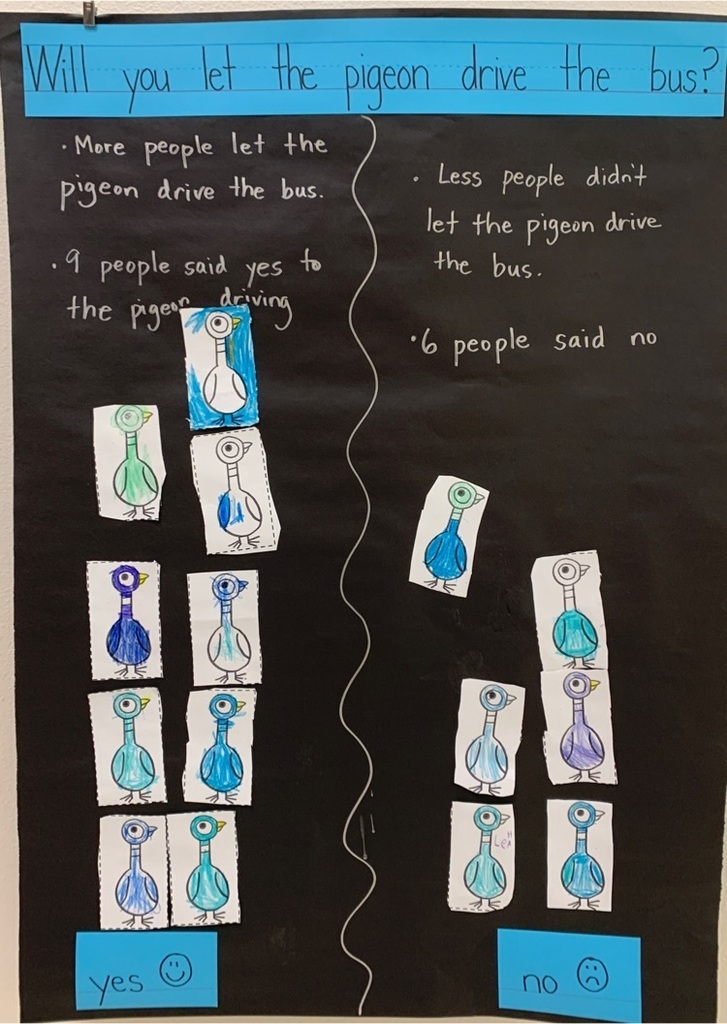 Will you let the pigeon drive the bus?
· More people let the
pigeon drive the bus.
· 9 people said yes to
the pigeon driving
· Less people didn't
let the pigeon drive
the bus.
· 6 people said no
yes
no